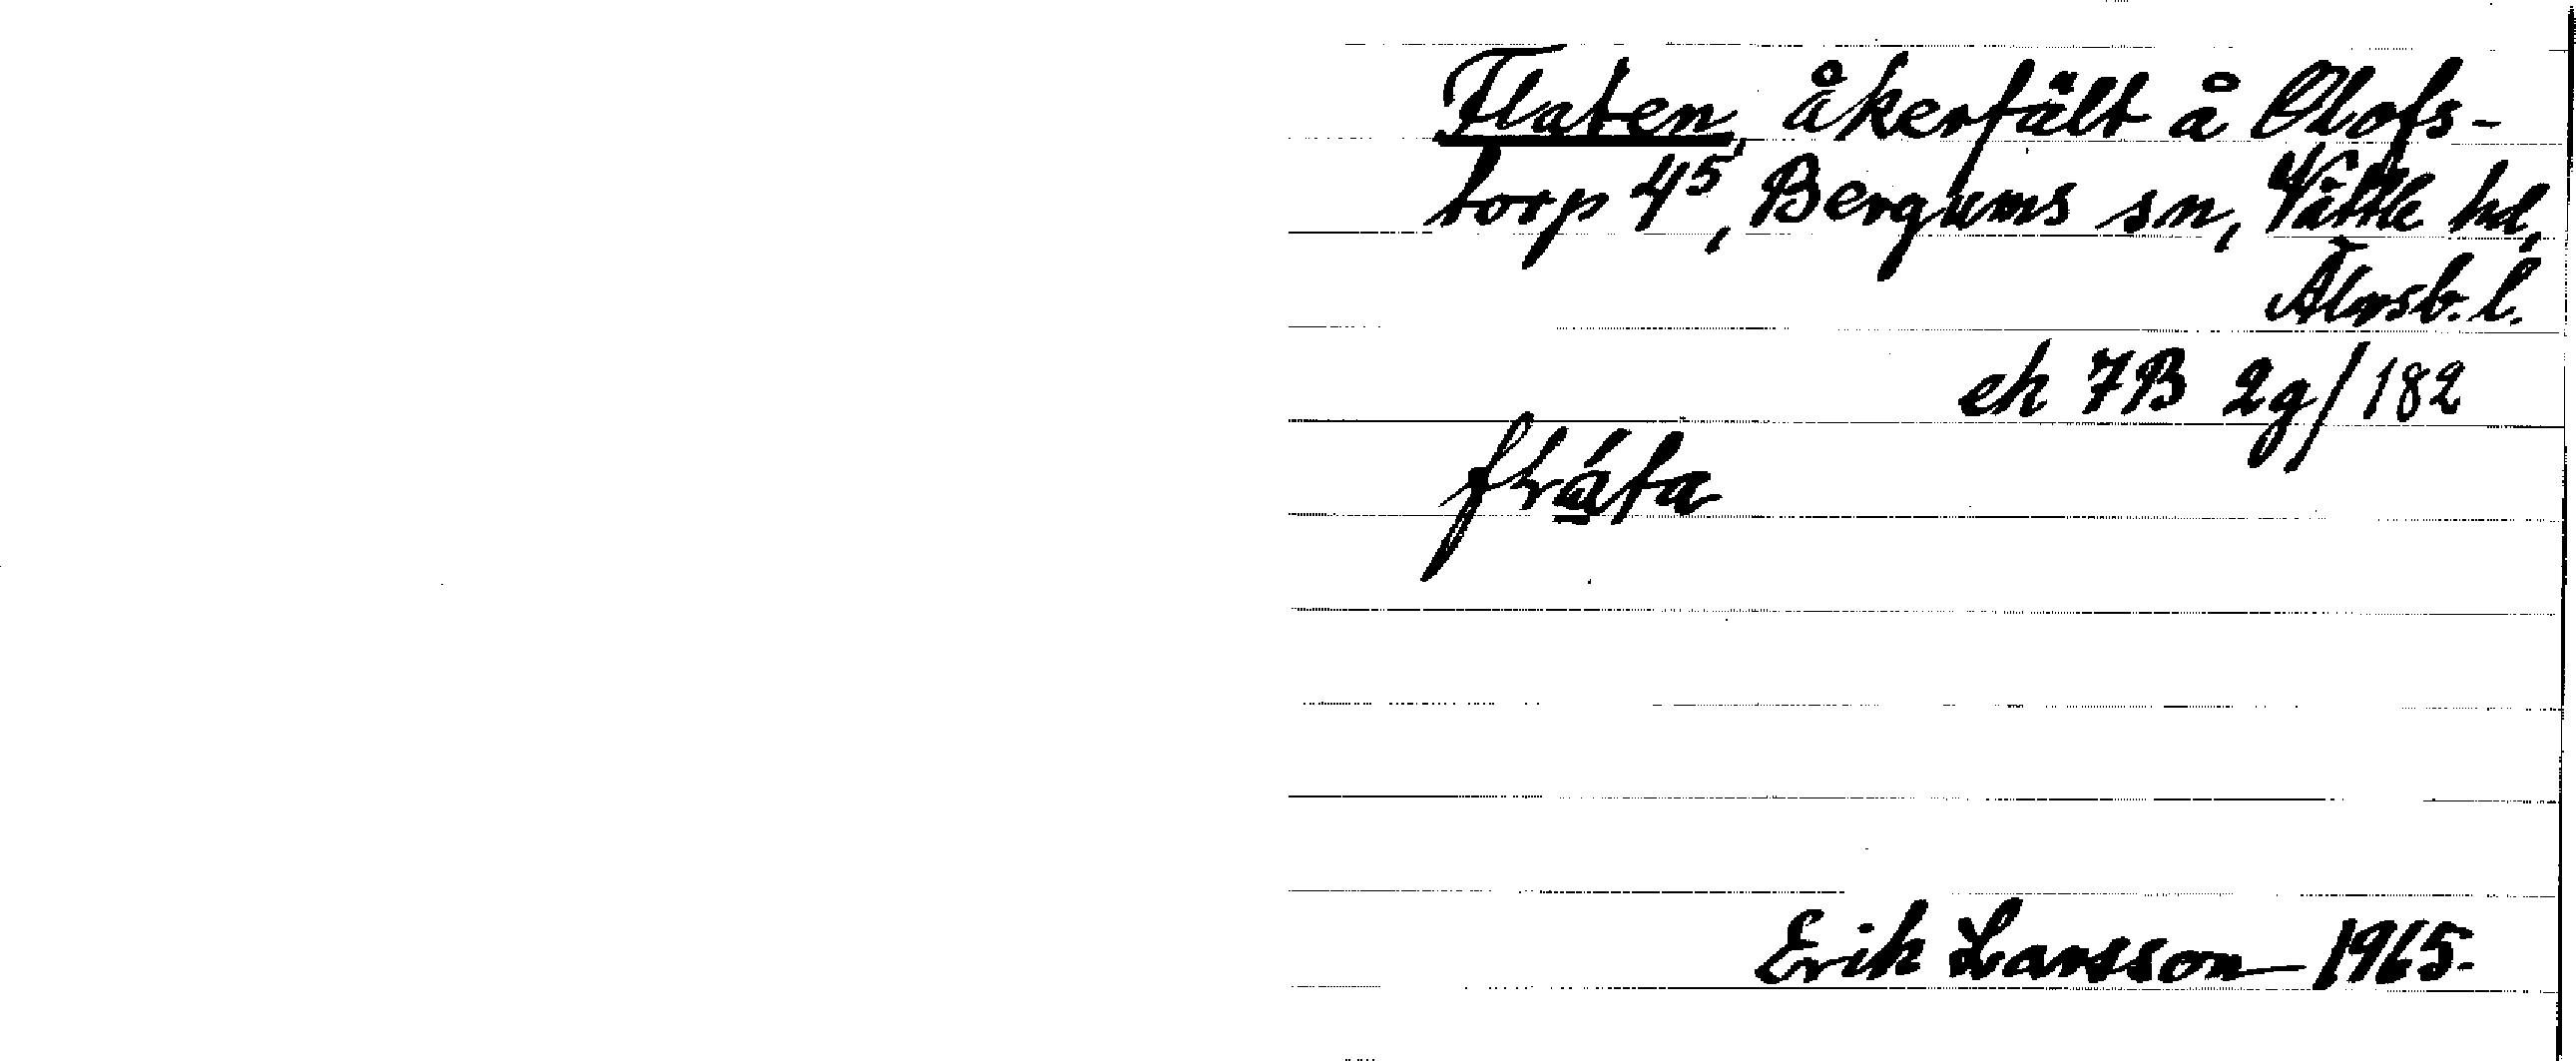 Flaten, åkerfält å Olofs-
torp 4⁵, Bergums sn, Vättle hd,
Älvsb. l.
ek 7B 2g/182
fláta
Erik Larsson 1965.